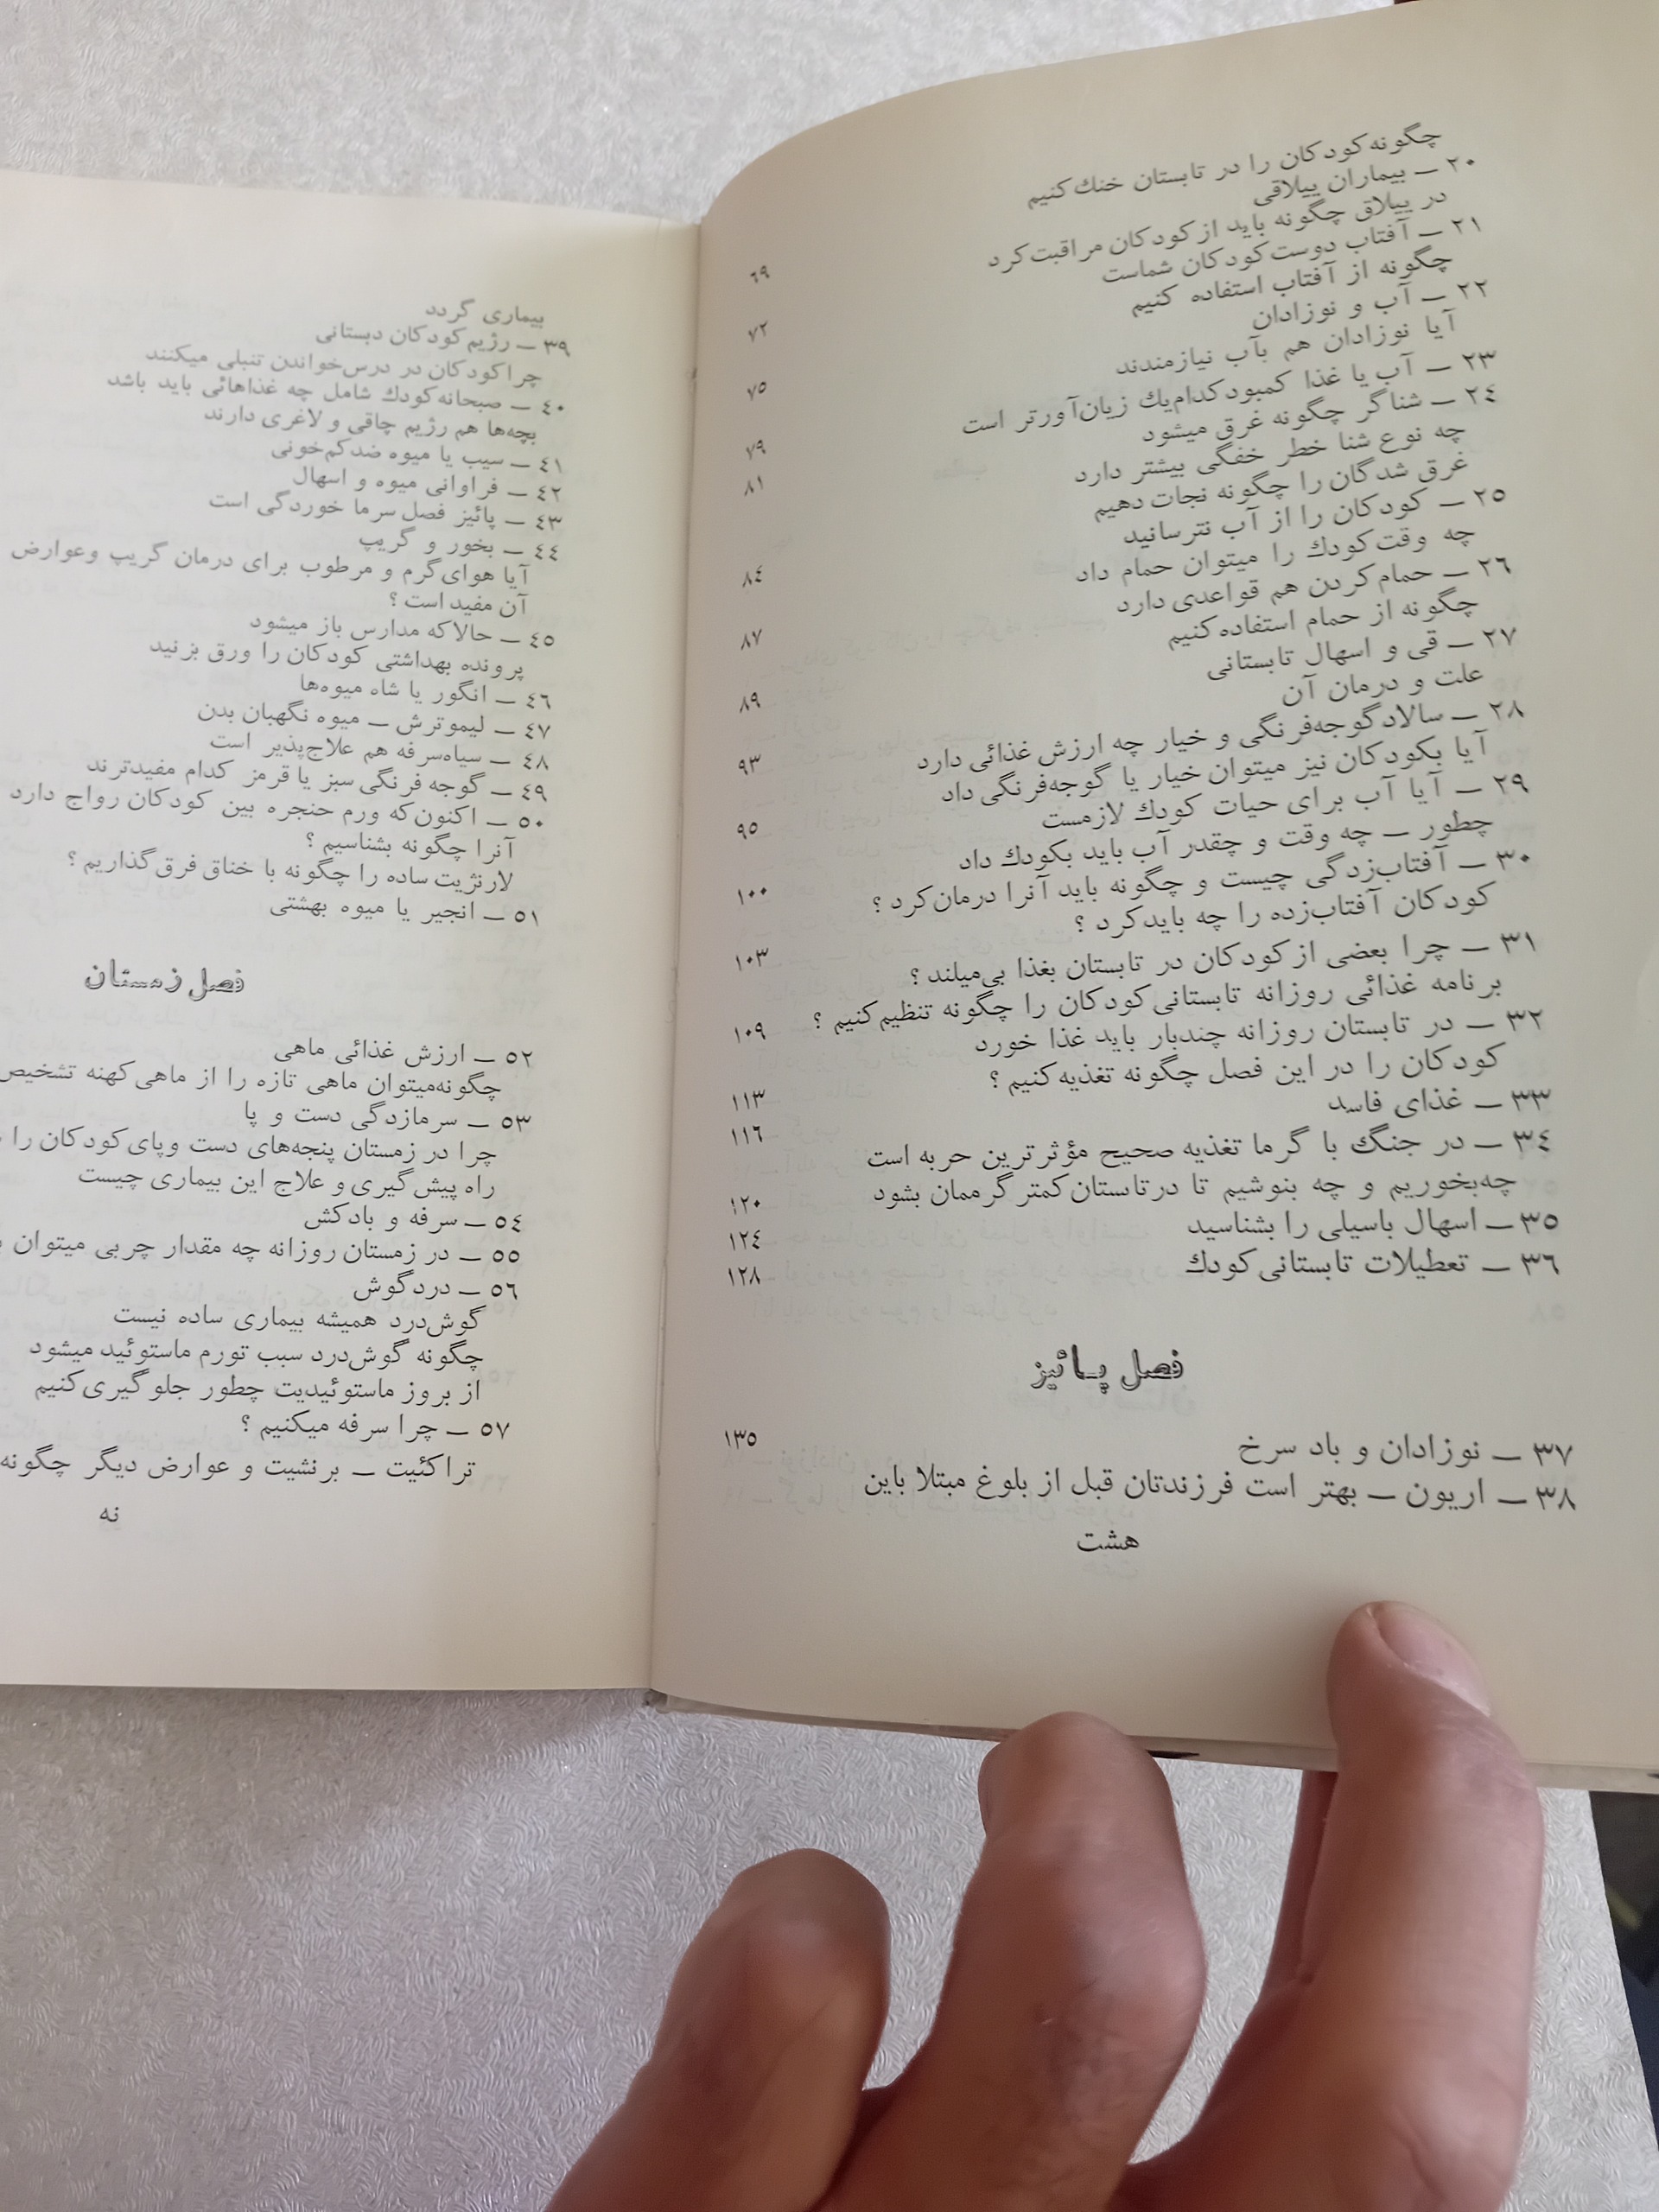 چگونه کودکان را در تابستان خنك کنیم
۲۰ ــ بیماران ییلاقی
در ییلاق چگونه باید از کودکان مراقبت کرد ۶۹
۲۱ ــ آفتاب دوست کودکان شماست
چگونه از آفتاب استفاده کنیم ۷۲
۲۲ ــ آب و نوزادان
آیا نوزادان هم بآب نیازمندند ۷۵
۲۳ ــ آب یا غذا کمبود کدام‌یك زیان‌آورتر است ۷۹
۲۴ ــ شناگر چگونه غرق میشود ۸۱
چه نوع شنا خطر خفگی بیشتر دارد
غرق شدگان را چگونه نجات دهیم
۲۵ ــ کودکان را از آب نترسانید ۸۴
چه وقت کودك را میتوان حمام داد
۲۶ ــ حمام کردن هم قواعدی دارد
چگونه از حمام استفاده کنیم ۸۷
۲۷ ــ قی و اسهال تابستانی
علت و درمان آن ۸۹
۲۸ ــ سالاد گوجه‌فرنگی و خیار چه ارزش غذائی دارد ۹۳
آیا بکودکان نیز میتوان خیار یا گوجه‌فرنگی داد
۲۹ ــ آیا آب برای حیات کودك لازمست ۹۵
چطور ــ چه وقت و چقدر آب باید بکودك داد
۳۰ ــ آفتاب‌زدگی چیست و چگونه باید آنرا درمان کرد ؟ ۱۰۰
کودکان آفتاب‌زده را چه باید کرد ؟
۳۱ ــ چرا بعضی از کودکان در تابستان بغذا بی‌میلند ؟ ۱۰۳
برنامه غذائی روزانه تابستانی کودکان را چگونه تنظیم کنیم ؟
۳۲ ــ در تابستان روزانه چندبار باید غذا خورد ۱۰۹
کودکان را در این فصل چگونه تغذیه کنیم ؟
۳۳ ــ غذای فاسد ۱۱۳
۳۴ ــ در جنگ با گرما تغذیه صحیح مؤثرترین حربه است ۱۱۶
چه‌بخوریم و چه بنوشیم تا درتاستان کمتر گرممان بشود
۳۵ ــ اسهال باسیلی را بشناسید ۱۲۰
۳۶ ــ تعطیلات تابستانی کودك ۱۲۴
۱۲۸
فصل پائیز
۳۷ ــ نوزادان و باد سرخ ۱۳۵
۳۸ ــ اریون ــ بهتر است فرزندتان قبل از بلوغ مبتلا باین
هشت
بیماری گردد
۳۹ ــ رژیم کودکان دبستانی
چرا کودکان در درس‌خواندن تنبلی میکنند
۴۰ ــ صبحانه کودك شامل چه غذاهائی باید باشد
بچه‌ها هم رژیم چاقی و لاغری دارند
۴۱ ــ سیب یا میوه ضد کم‌خونی
۴۲ ــ فراوانی میوه و اسهال
۴۳ ــ پائیز فصل سرما خوردگی است
۴۴ ــ بخور و گریپ
آیا هوای گرم و مرطوب برای درمان گریپ وعوارض
آن مفید است ؟
۴۵ ــ حالا که مدارس باز میشود
پرونده بهداشتی کودکان را ورق بزنید
۴۶ ــ انگور یا شاه میوه‌ها
۴۷ ــ لیموترش ــ میوه نگهبان بدن
۴۸ ــ سیاه‌سرفه هم علاج‌پذیر است
۴۹ ــ گوجه فرنگی سبز یا قرمز کدام مفیدترند
۵۰ ــ اکنون‌که ورم حنجره بین کودکان رواج دارد
آنرا چگونه بشناسیم ؟
لارنژیت ساده را چگونه با خناق فرق گذاریم ؟
۵۱ ــ انجیر یا میوه بهشتی
فصل زمستان
۵۲ ــ ارزش غذائی ماهی
چگونه‌میتوان ماهی تازه را از ماهی کهنه تشخیص
۵۳ ــ سرمازدگی دست و پا
چرا در زمستان پنجه‌های دست وپای کودکان را
راه پیش‌گیری و علاج این بیماری چیست
۵۴ ــ سرفه و بادکش
۵۵ ــ در زمستان روزانه چه مقدار چربی میتوان
۵۶ ــ دردگوش
گوش‌درد همیشه بیماری ساده نیست
چگونه گوش‌درد سبب تورم ماستوئید میشود
از بروز ماستوئیدیت چطور جلوگیری کنیم
۵۷ ــ چرا سرفه میکنیم ؟
تراکئیت ــ برنشیت و عوارض دیگر چگونه
نه